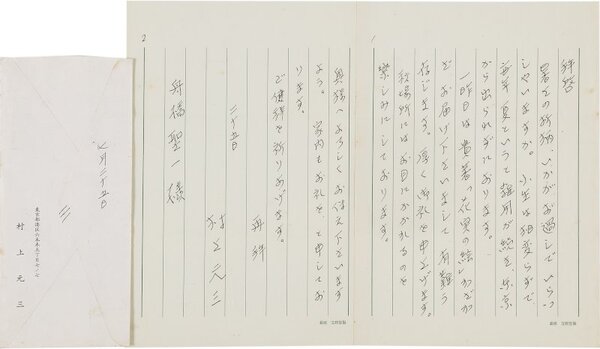 1
拝啓
暑さの折柄、いかがお過しでいらっ
しゃいますか。小生は相変らずで
毎年夏というと雑用が続き、東京
から出られずにおります。
一昨日は貴著「花実の絵」
をお届け下さいまして有難う
存じます。厚く御礼を申上げます。
秋場所にはお目にかかれるのを
楽しみにしております。
2
奥様へよろしくお伝え下さいます
よう。家内もお礼を、と申してお
ります。
御健祥を祈りあげます。
再拝
二十五日
村上元三
舟橋聖一様
七月二十五日
村上元三